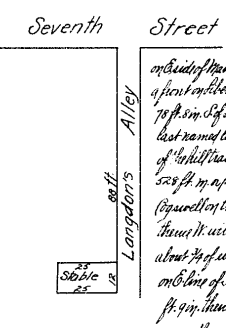 Seventh Street
Langdon's Alley
88 ft
25
Stable
12
25
on E side of
a front on
78 ft. 8 in. S of
last named
of
528 ft. m or
Cogswell on
thence W
about 3/4 of
on E line of
ft. 9 in. thence